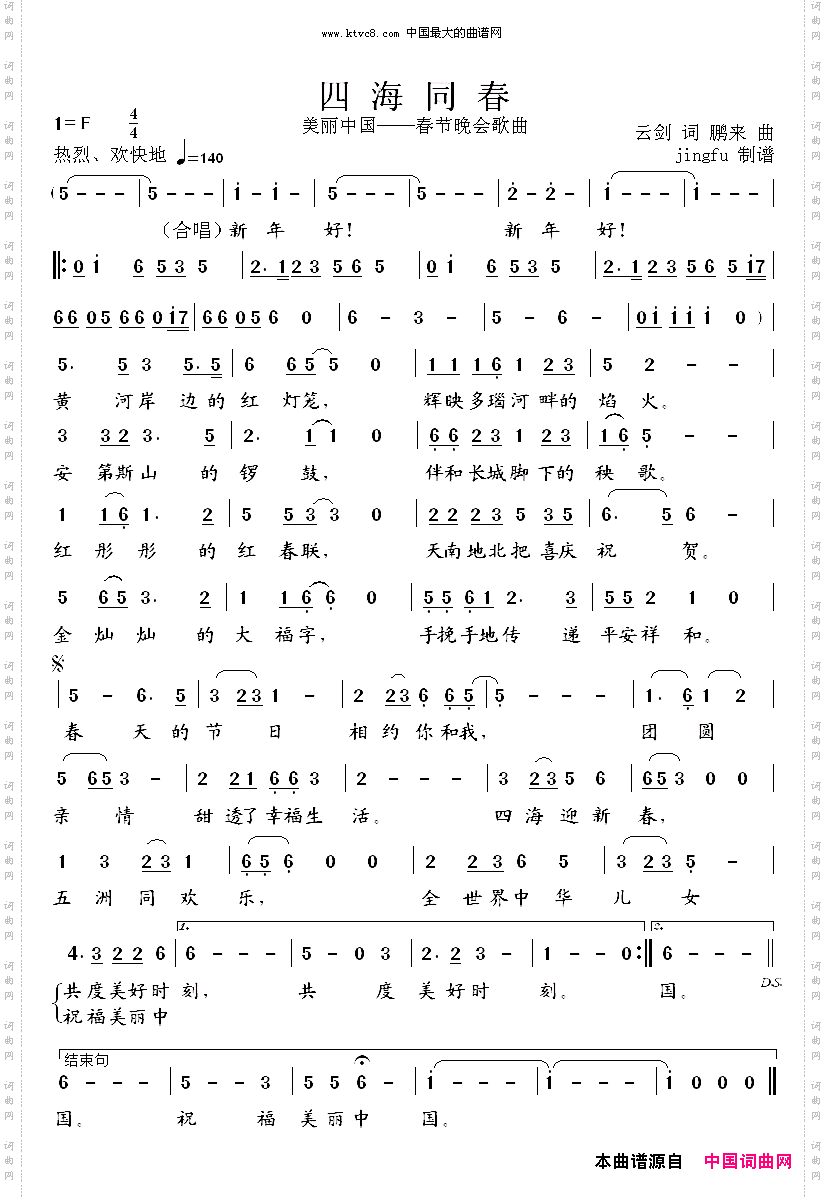 www.ktvc8.com 中国最大的曲谱网
四海同春
1=F 4/4
美丽中国——春节晚会歌曲
云剑 词 鹏来 曲
热烈、欢快地 ♩=140
jingfu 制谱
(5 - - - | 5 - - - | i - i - | 5 - - - | 5 - - - | 2 - 2 - | i - - - | i - - - |
(合唱)新 年 好! 新 年 好!
‖: 0 i 6 5 3 5 | 2. 1 2 3 5 6 5 | 0 i 6 5 3 5 | 2. 1 2 3 5 6 5 i 7 |
6 6 0 5 6 6 0 i 7 | 6 6 0 5 6 0 | 6 - 3 - | 5 - 6 - | 0 i i i i 0 )|
5. 5 3 5. 5 | 6 6 5 5 0 | 1 1 1 6 1 2 3 | 5 2 - - |
黄 河岸 边的红 灯笼, 辉映多瑙河畔的 焰 火。
3 3 2 3. 5 | 2. 1 1 0 | 6 6 2 3 1 2 3 | 1 6 5 - - |
安 第斯山 的锣 鼓, 伴和长城脚下的 秧 歌。
1 1 6 1. 2 | 5 5 3 3 0 | 2 2 2 3 5 3 5 | 6. 5 6 - |
红 彤彤 的红春联, 天南地北把喜庆祝 贺。
5 6 5 3. 2 | 1 1 6 6 0 | 5 5 6 1 2. 3 | 5 5 2 1 0 |
金 灿灿 的大 福字, 手挽手地传 递 平安祥 和。
| 5 - 6. 5 | 3 2 3 1 - | 2 2 3 6 6 5 | 5 - - - | 1. 6 1 2 |
春 天的节 日 相约你和我, 团 圆
5 6 5 3 - | 2 2 1 6 6 3 | 2 - - - | 3 2 3 5 6 | 6 5 3 0 0 |
亲 情 甜透了幸福生 活。 四海迎新春,
1 3 2 3 1 | 6 5 6 0 0 | 2 2 3 6 5 | 3 2 3 5 - |
五洲同欢 乐, 全 世界中华 儿 女
1. 2.
4. 3 2 2 6 | 6 - - - | 5 - 0 3 | 2. 2 3 - | 1 - - 0 :‖ 6 - - - ‖
D.S.
共度美好时刻, 共 度 美好时 刻。 国。
祝福美丽中
结束句
6 - - - | 5 - - 3 | 5 5 6 - | i - - - | i - - - | i 0 0 0 ‖
国。 祝 福 美丽中 国。
本曲谱源自 中国词曲网